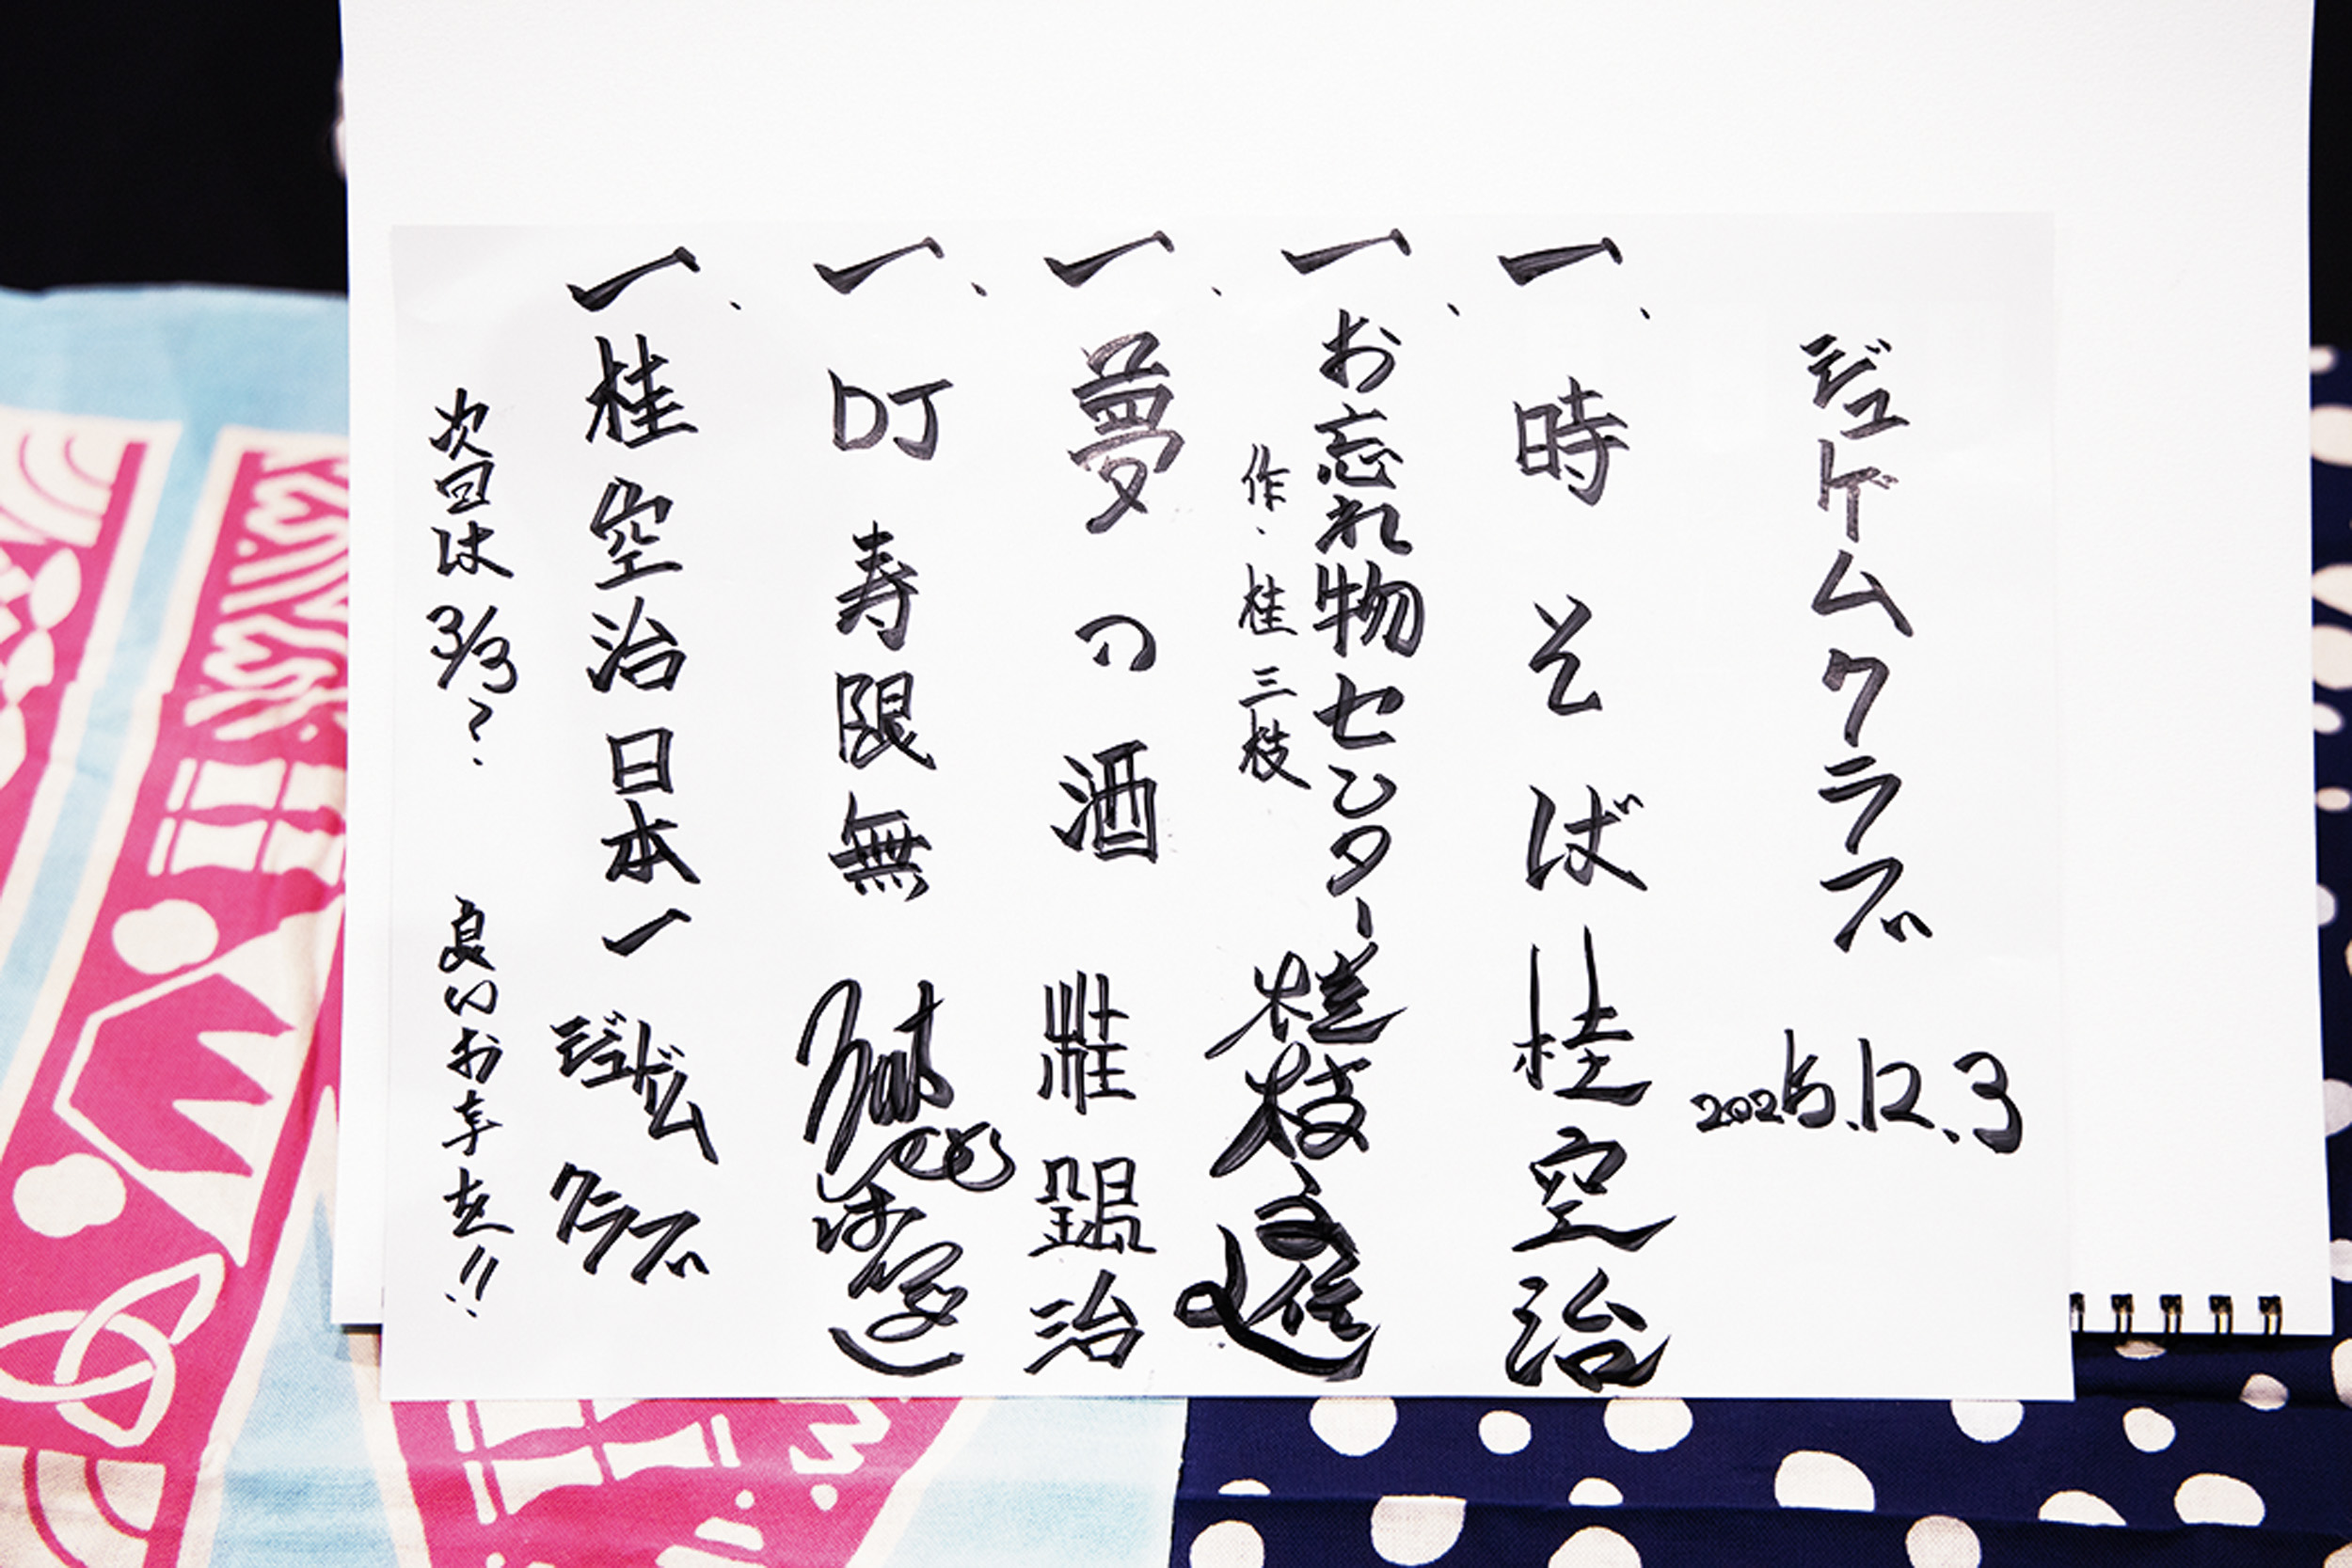 ジュゲムクラブ 2025.12.3
一、時そば 桂空治
一、お忘れ物センター 桂枝之進
作・桂三枝
一、夢の酒 桂空治
一、DJ 寿限無
一、桂空治日本一 ジュゲムクラブ
次回は3/3? 良いお年を!!